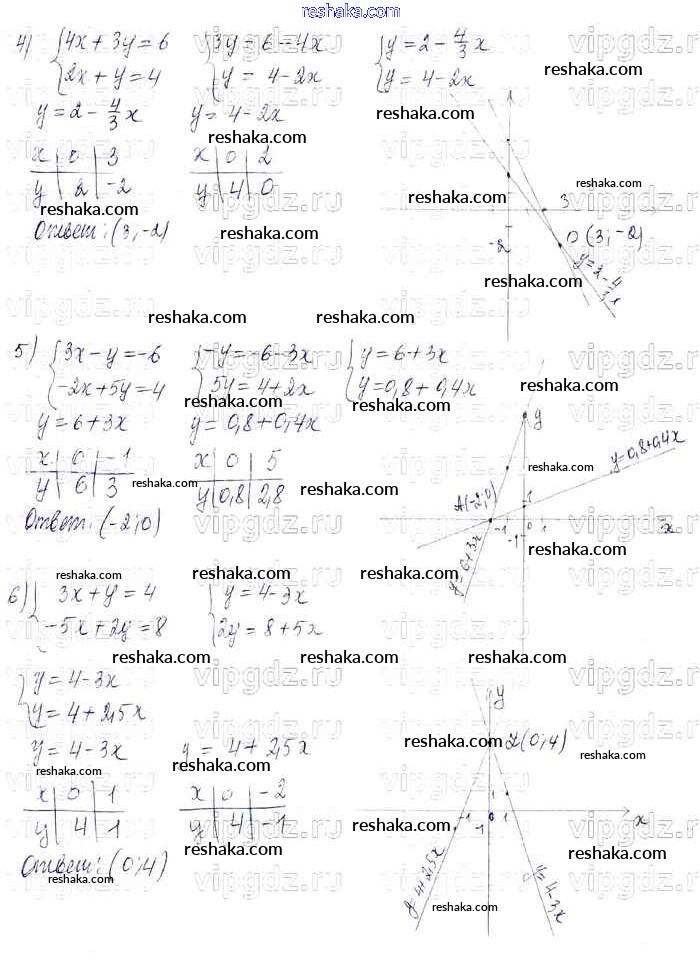 reshaka.com
4) {4x + 3y = 6 {3y = 6 - 4x {y = 2 - 4/3 x
{2x + y = 4 {y = 4 - 2x {y = 4 - 2x
y = 2 - 4/3 x y = 4 - 2x
x | 0 | 3 x | 0 | 2
y | 2 | -2 y | 4 | 0
Ответ: (3; -2)
3
-2
O (3; -2)
y = 2 - 4/3 x
5) {3x - y = -6 {-y = -6 - 3x {y = 6 + 3x
{-2x + 5y = 4 {5y = 4 + 2x {y = 0,8 + 0,4x
y = 6 + 3x y = 0,8 + 0,4x
x | 0 | -1 x | 0 | 5
y | 6 | 3 y | 0,8 | 2,8
Ответ: (-2; 0)
y
y = 0,8 + 0,4x
A(-2; 0)
1
-1 0 1
-1
x
y = 6 + 3x
6) { 3x + y = 4 {y = 4 - 3x
{-5x + 2y = 8 {2y = 8 + 5x
{y = 4 - 3x
{y = 4 + 2,5x
y = 4 - 3x y = 4 + 2,5x
x | 0 | 1 x | 0 | -2
y | 4 | 1 y | 4 | -1
Ответ: (0; 4)
y
(0; 4)
1
-1 0 1
-1
x
y = 4 + 2,5x
y = 4 - 3x
vipgdz.ru
reshaka.com